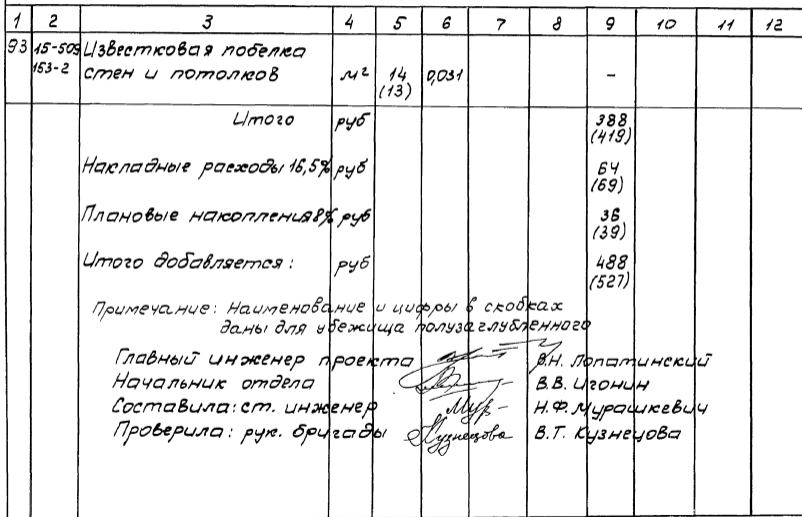 1 2 3 4 5 6 7 8 9 10 11 12
93 15-509 Известковая побелка
153-2 стен и потолков м² 14 0,031 -
(13)
Итого руб 388
(419)
Накладные расходы 16,5% руб 64
(69)
Плановые накопления 8% руб 36
(39)
Итого добавляется: руб 488
(527)
Примечание: Наименование и цифры в скобках
даны для убежища полузаглубленного
Главный инженер проекта В.Н. Лопатинский
Начальник отдела В.В. Игонин
Составила: ст. инженер Мур- Н.Ф. Мурашкевич
Проверила: рук. бригады Кузнецова В.Т. Кузнецова